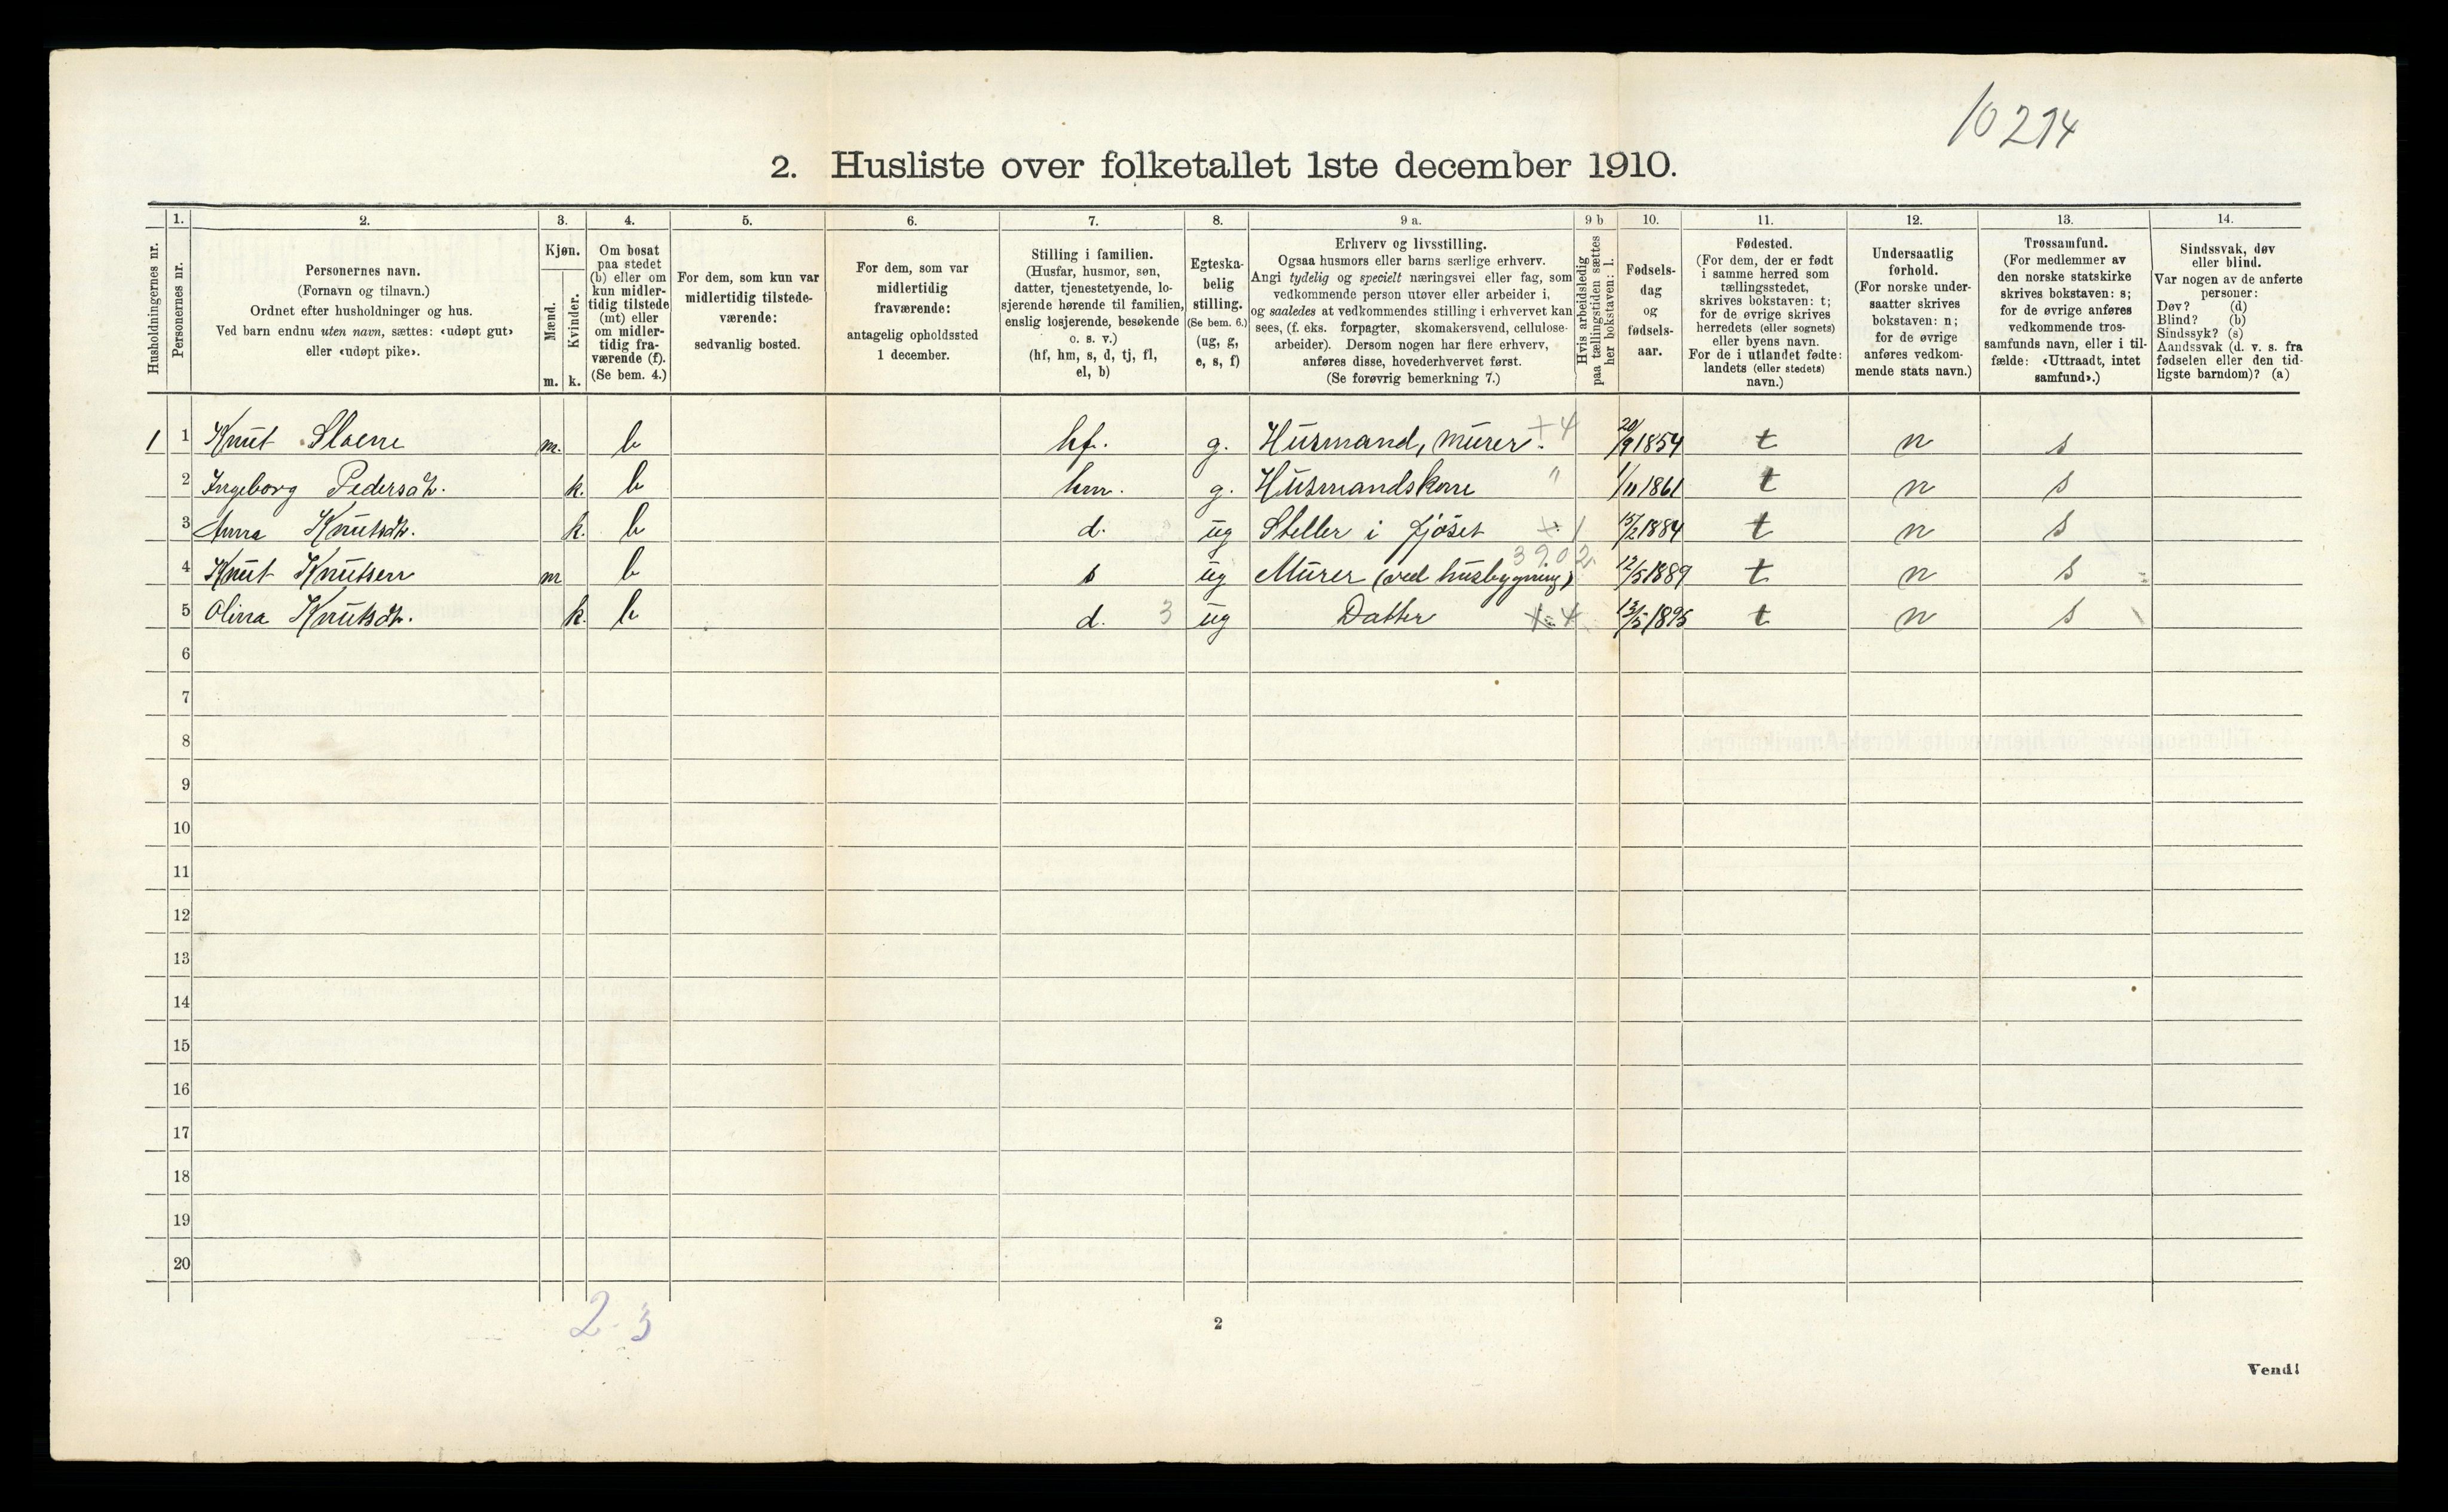 10214
2. Husliste over folketallet 1ste december 1910.
Husholdningernes nr.
1.
Personernes nr.
2.
Personernes navn.
(Fornavn og tilnavn.)
Ordnet efter husholdninger og hus.
Ved barn endnu uten navn, sættes: «udøpt gut»
eller «udøpt pike».
3.
Kjøn.
Mænd.
Kvinder.
m. k.
4.
Om bosat
paa stedet
(b) eller om
kun midler-
tidig tilstede
(mt) eller
om midler-
tidig fra-
værende (f).
(Se bem. 4.)
5.
For dem, som kun var
midlertidig tilstede-
værende:
sedvanlig bosted.
6.
For dem, som var
midlertidig
fraværende:
antagelig opholdssted
1 december.
7.
Stilling i familien.
(Husfar, husmor, søn,
datter, tjenestetyende, lo-
sjerende hørende til familien,
enslig losjerende, besøkende
o. s. v.)
(hf, hm, s, d, tj, fl,
el, b)
8.
Egteska-
belig
stilling.
(Se bem. 6.)
(ug, g,
e, s, f)
9 a.
Erhverv og livsstilling.
Ogsaa husmors eller barns særlige erhverv.
Angi tydelig og specielt næringsvei eller fag, som
vedkommende person utøver eller arbeider i,
og saaledes at vedkommendes stilling i erhvervet kan
sees, (f. eks. forpagter, skomakersvend, cellulose-
arbeider). Dersom nogen har flere erhverv,
anføres disse, hovederhvervet først.
(Se forøvrig bemerkning 7.)
9 b
Hvis arbeidsledig
paa tællingstiden sættes
her bokstaven: l.
10.
Fødsels-
dag
og
fødsels-
aar.
11.
Fødested.
(For dem, der er født
i samme herred som
tællingsstedet,
skrives bokstaven: t;
for de øvrige skrives
herredets (eller sognets)
eller byens navn.
For de i utlandet fødte:
landets (eller stedets)
navn.)
12.
Undersaatlig
forhold.
(For norske under-
saatter skrives
bokstaven: n;
for de øvrige
anføres vedkom-
mende stats navn.)
13.
Trossamfund.
(For medlemmer av
den norske statskirke
skrives bokstaven: s;
for de øvrige anføres
vedkommende tros-
samfunds navn, eller i til-
fælde: «Uttraadt, intet
samfund».)
14.
Sindssvak, døv
eller blind.
Var nogen av de anførte
personer:
Døv? (d)
Blind? (b)
Sindssyk? (s)
Aandssvak (d. v. s. fra
fødselen eller den tid-
ligste barndom)? (a)
1 1 Knut Sloene m. b hf. g. Husmand, murer. +4 20/9 1854 t n s
2 Ingeborg Pedersdt. k. b hm. g. Husmandskone " 1/11 1861 t n s
3 Anna Knutsdt. k. b d. ug Steller i fjøset + 1 15/2 1884 t n s
4 Knut Knutsen m b s ug Murer (ved husbygning) 3902 12/5 1889 t n s
5 Olina Knutsdt. k. b d. 3 ug Datter 4 13/5 1895 t n s
6
7
8
9
10
11
12
13
14
15
16
17
18
19
20
2-3
2
Vend!